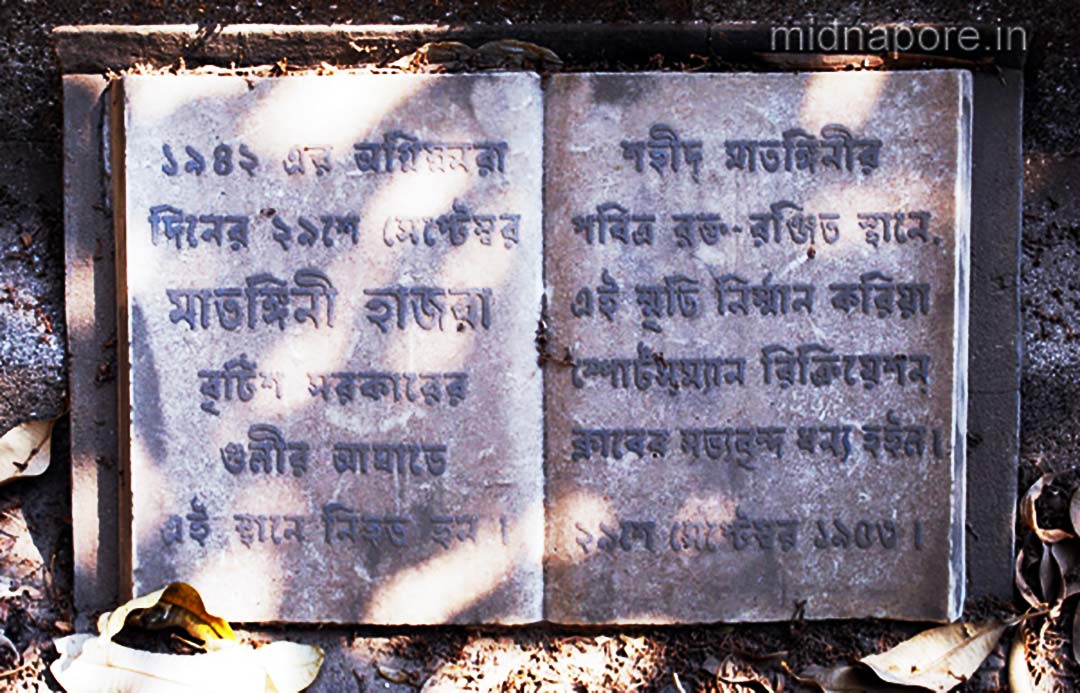 midnapore.in
১৯৪২ এর অগ্নিঝরা
দিনের ২৯শে সেপ্টেম্বর
মাতঙ্গিনী হাজরা
বৃটিশ সরকারের
গুলীর আঘাতে
এই স্থানে নিহত হন।
শহীদ মাতঙ্গিনীর
পবিত্র রক্ত-রঞ্জিত স্থানে,
এই স্মৃতি নির্ম্মান করিয়া
স্পোর্টস্‌ম্যান রিক্রিয়েশন
ক্লাবের সভ্যবৃন্দ ধন্য হইল।
২৯শে সেপ্টেম্বর ১৯৫৩।